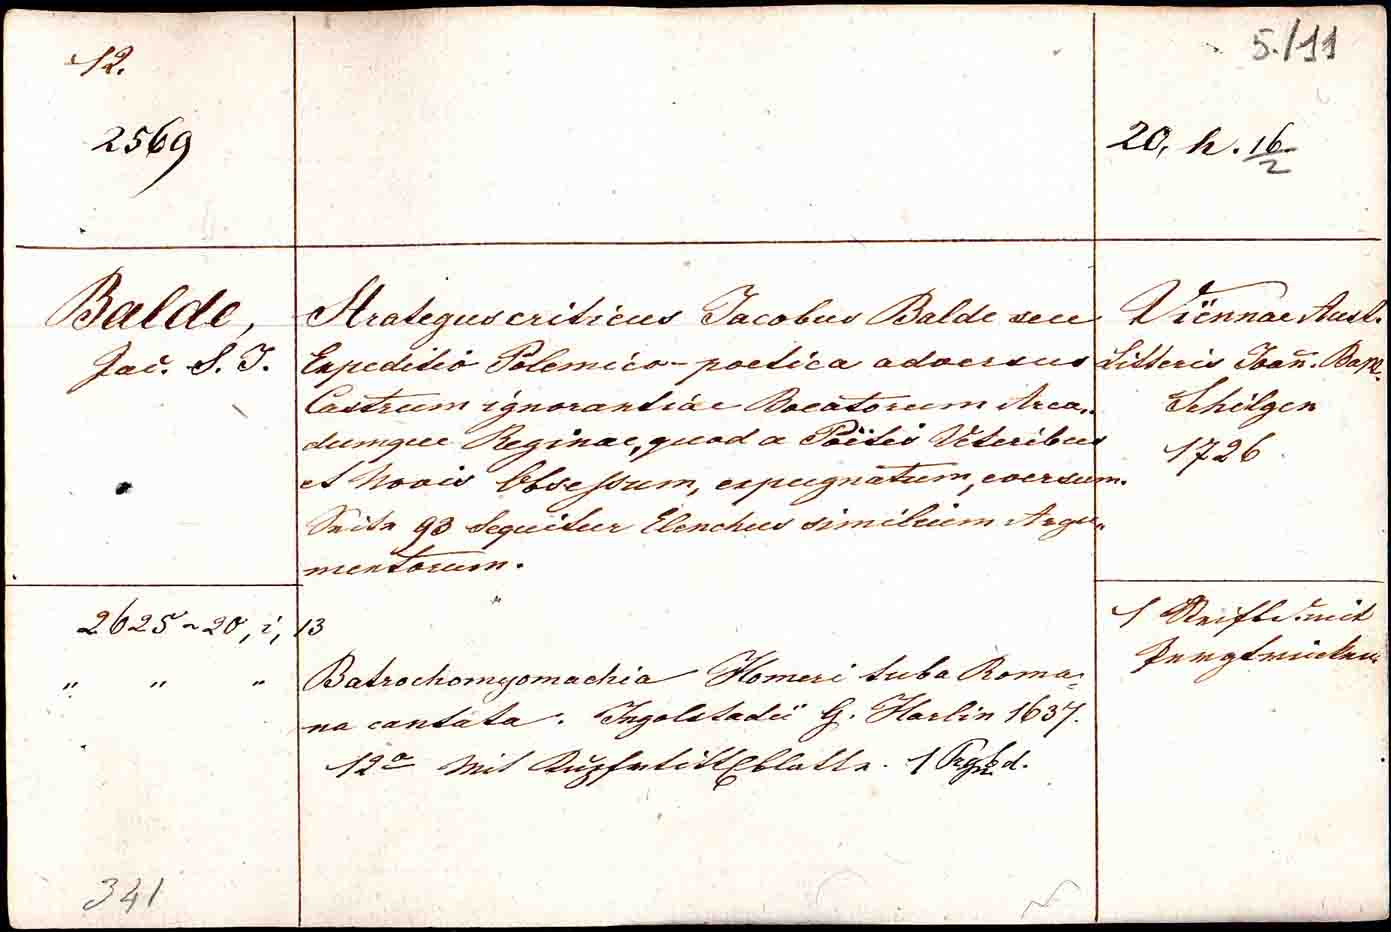 12.
5./11
2569
20, h. 16/2
Balde,
Jac. S. J.
Strategus criticus Jacobus Balde seu
Expeditio Polemico-poetica adversus
Castrum ignorantiae Boeatorum Arca„
dumque Reginae, quod a Poëtis Veteribus
et Novis Obsessum, expugnatum, eversum.
Seite 93 Sequitur Elenchus similium Argu„
mentorum.
Viennae Aust.
Litteris Joañ. Bapt.
Schilgen
1726
2625 ~ 20, i, 13
1 Steifbd. mit
„ „ „
Batrochomyomachia Homeri tuba Roma„
na cantata. Ingolstadii G. Haelin 1637.
12° Mit Kupfertittelblatte. 1 Prgbd.
341